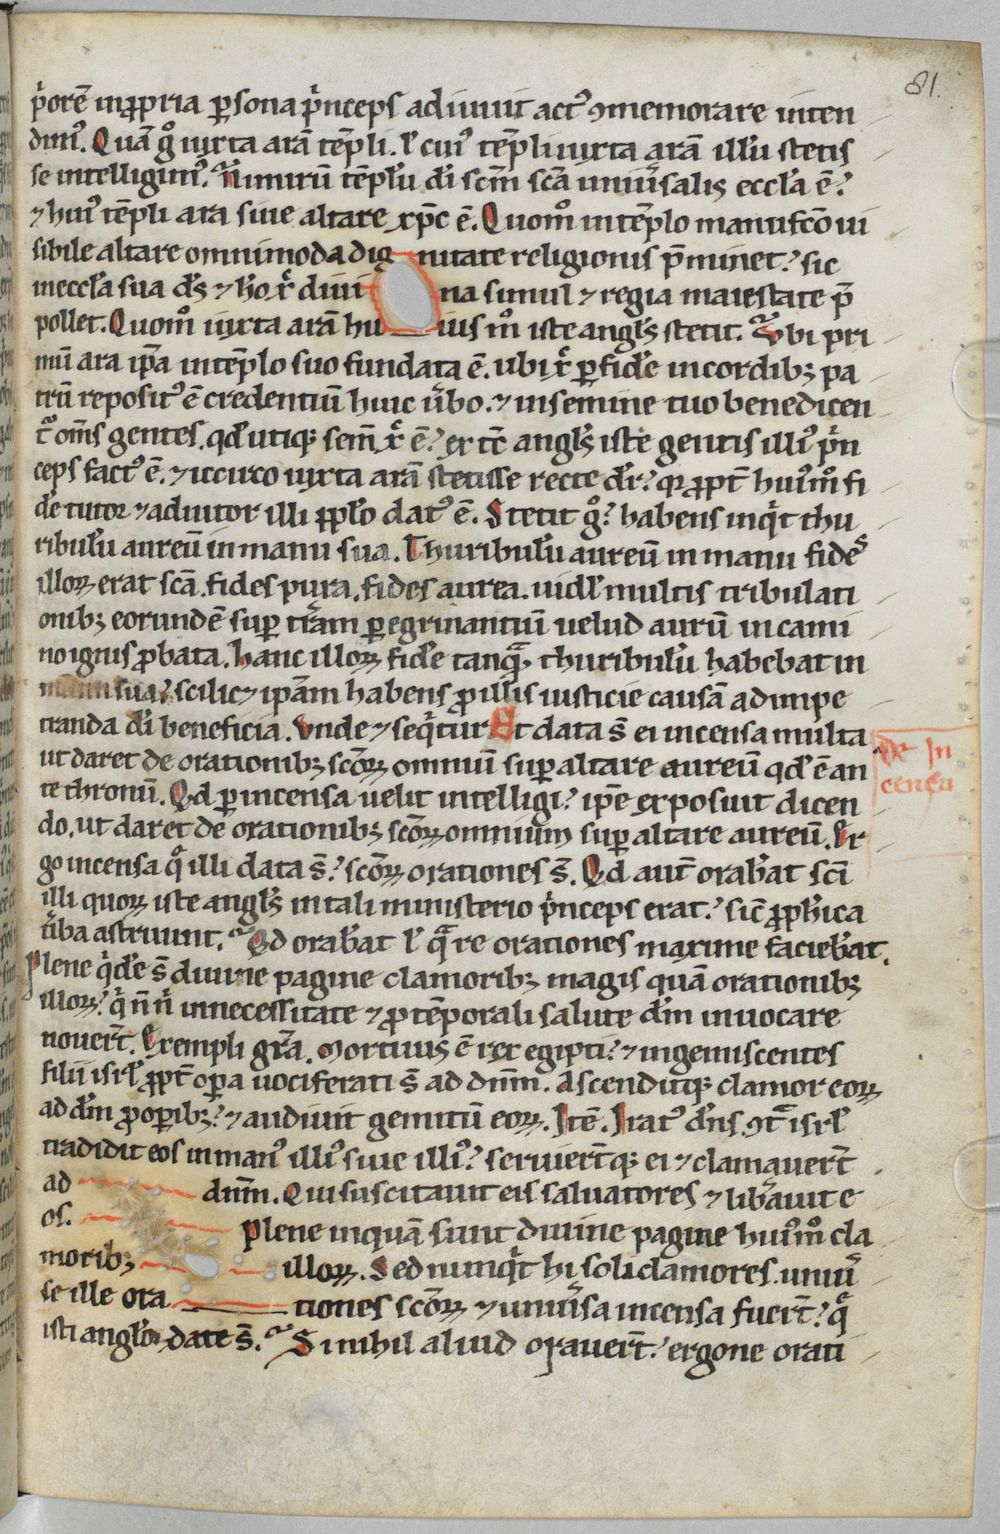 81.
p̾orē in ꝓpria ꝑsona p̾nceps adiuuit actꝰ ꝯmemorare inten
dimꝰ. Quā g̊ iuxta arā tēpli. l̾ cuiꝰ tēpli iuxta arā illū stetis
se intelligimꝰ. Nimirū tēplū dī scm̄ scā uniu̾salis eccl̾a ē?
⁊ huiꝰ tēpli ara siue altare xp̄c ē. Quom̊ in tēplo manufc̄o ui
sibile altare omnimoda dig nitate religionis p̄minet? sic
in eccl̾a sua ds̄ ⁊ ho xr̄ diui na simul ⁊ regia maiestate p̄
pollet. Quom̊ iuxta arā hu ius m̊ iste angl̾s stetit. Vbi pri
mū ara ip̄a in tēplo suo fundata ē. ubi xr̄ ꝑ fidē in cordibꝫ pa
trū repositꝰ ē credentiū huic u̾bo. ⁊ in semine tuo benedicen
t᷑ om̄s gentes. qd̾ utiqꝫ sem̄ xr̄ ē? ex tc̄ angl̾s iste gentis illiꝰ p̾n
ceps factꝰ ē. ⁊ iccirco iuxta arā stetisse recte dr̄? qꝛ ꝓpt̄ huiꝰm̊ fi
dē tutor ⁊ adiutor illi ppl̾o datꝰ ē. Stetit g̊? habens inq̾t thu
ribulū aureū in manu sua. Thuribulū aureū in manu fides
illoꝝ erat scā. fides pura. fides aurea. uidl̾ multis tribulati
onibꝫ eorundē suꝑ tr̄am ꝑegrinantiū uelud aurū in cami
no ignis ꝓbata. hanc illoꝝ fidē tanqᷓ thuribulū habebat in
manu sua? scilic⁊ ip̄am habens ꝓ illis iusticie causā ad impe
tranda dī beneficia. Vnde ⁊ seq̾tur Et data s̄ ei incensa multa
ut daret de orationibꝫ scōꝝ omniū suꝑ altare aureū qd̾ ē an
te thronū. Qd ꝑ incensa uelit intelligi? ip̄e exposuit dicen
do. ut daret de orationibꝫ scōꝝ omnium suꝑ altare aureū. Er
go incensa q̊ illi data s̄? scōꝝ orationes s̄. Qd aut̄ orab̾at scī
illi quoꝝ iste angl̾s in tali ministerio p̾nceps erat? sic̄ ꝓph̾ica
u̾ba astruunt. Qd orab̾at l̾ qᷓre orationes maxime facieb̾at.
Plene q̾dē s̄ diuine pagine clamoribꝫ magis quā orationibꝫ
illoꝝ? q̾ n̄ n̾ in necessitate ⁊ ꝓ tēporali salute dm̄ inuocare
nouer̄t. Exempli gr̄a. Mortuus ē rex egipti? ⁊ ingemiscentes
filii isrl̾ ꝓpt̄ oꝑa uociferati s̄ ad dnm̄. Ascenditqꝫ clamor eoꝝ
ad dm̄ ꝓ oꝑibꝫ? ⁊ audiuit gemitū eoꝝ. Itē. Iratꝰ dn̄s ꝯt̄ isrl̾
tradidit eos in manꝰ illiꝰ siue illiꝰ? seruier̄tqꝫ ei ⁊ clamauer̄t
ad dnm̄. Qui suscitauit eis saluatores ⁊ lib̾auit e
os. Plene inquā sunt diuine pagine huiꝰm̊ cla
moribꝫ illoꝝ. Sed nunq̾t hi soli clamores. uniu̾
se ille ora tiones scōꝝ ⁊ uniu̾sa incensa fuer̄t? q̄
isti angl̾o date s̄. Si nihil aliud orauer̄t? ergone orati
de In
censu